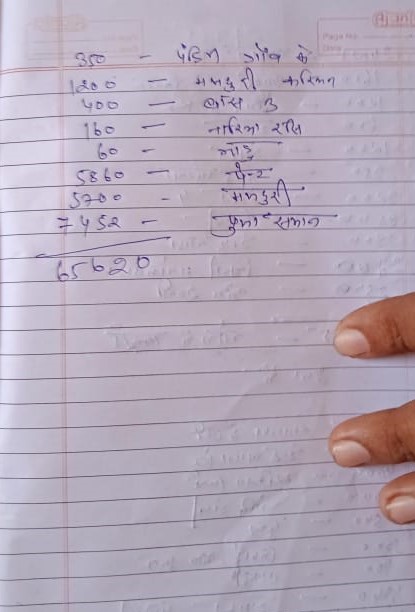 Page No.
Date
350 - पंडित गाँव के
1200 - मजदुरी करिमन
400 - बाँस 3
160 - नारियल रस्सि
60 - झाडु
5860 - पेन्ट
5700 - मजदुरी
7452 - पुजा समान
65620